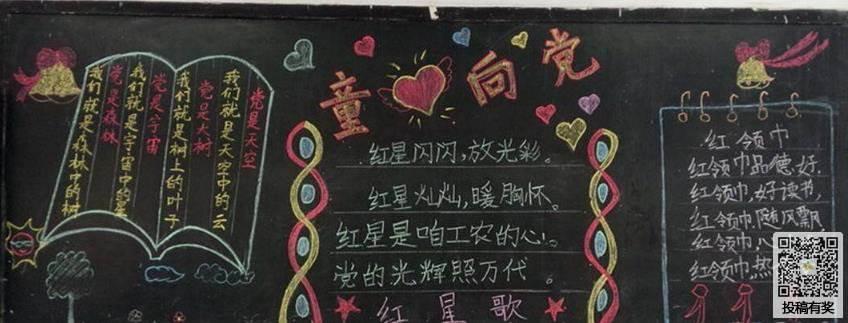 党是天空
我们就是天空中的云
党是大树
我们就是树上的叶子
党是宇宙
我们就是宇宙中的星
党是森林
我们就是森林中的树
童向党
红星闪闪,放光彩。
红星灿灿,暖胸怀。
红星是咱工农的心。
党的光辉照万代。
红星歌
红领巾
红领巾品德好,
红领巾,好读书,
红领巾,随风飘,
红领巾,
红领巾,热
投稿有奖